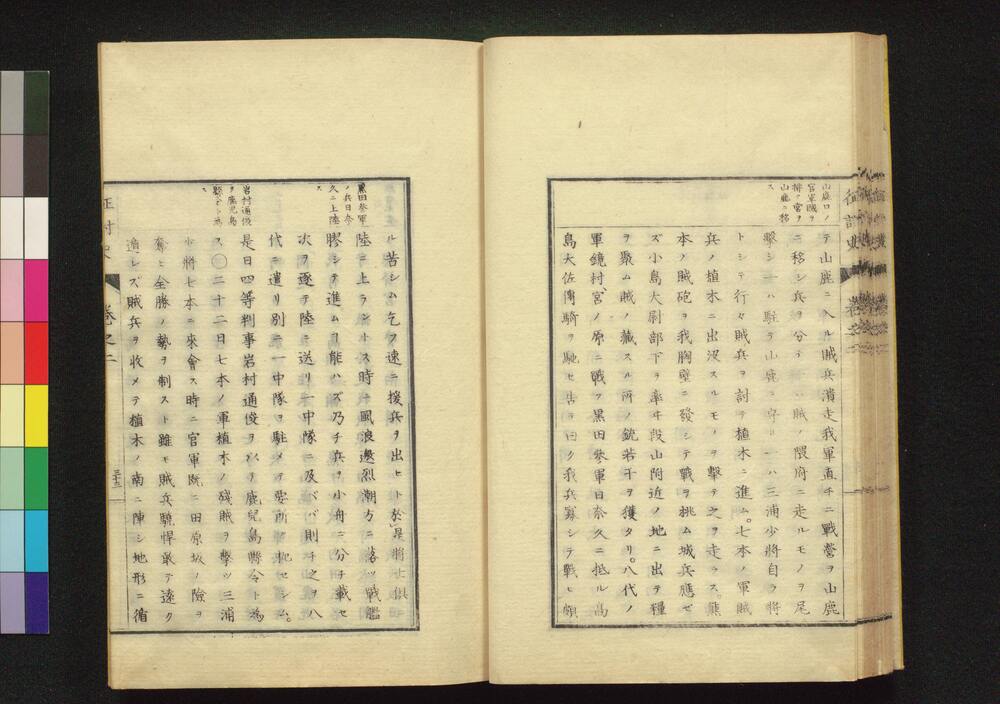 山鹿口ノ
官軍賊ヲ
掃ヒ營ヲ
山鹿ニ移
ス
テ山鹿ニ入ル賊兵潰走我軍直チニ戰營ヲ山鹿
ニ移シ兵ヲ分チ一ハ賊ノ隈府ニ走ルモノヲ尾
擊シ一ハ駐テ山鹿ニ守リ一ハ三浦少將自ラ將
トシテ行々賊兵ヲ討テ植木ニ進ム七本ノ軍賊
兵ノ植木ニ出沒スルモノヲ擊テ之ヲ走ラス熊
本ノ賊砲ヲ我胸壁ニ發シテ戰ヲ挑ム城兵應ゼ
ズ小島大尉部下ヲ率ヰ段山附近ノ地ニ出テ糧
ヲ聚ム賊ノ藏スル所ノ銃若干ヲ獲タリ八代ノ
軍鏡村宮ノ原ニ戰フ黑田參軍日奈久ニ抵ル高
島大佐傳騎ヲ馳セ告テ曰ク我兵寡シテ戰ヒ頗
征討史
卷之二
黑田參軍
ノ兵日奈
久ニ上陸
ス
ル苦シム乞フ速ニ援兵ヲ出セト於是將士俱
陸ニ上ラントス時ニ風浪邀烈潮方ニ落ツ戰艦
膠シテ進ムヿ能ハズ乃チ兵ヲ小舟ニ分チ載セ
次ヲ逐テ陸ニ送リ一中隊ニ及ベバ則チ之ヲ八
代ニ遣リ別ニ一中隊ヲ駐メテ要所ヲ扼セシム
岩村通俊
ヲ鹿兒島
縣令ト爲
ス
是日四等判事岩村通俊ヲ以テ鹿兒島縣令ト爲
ス〇二十二日七本ノ軍植木ノ殘賊ヲ擊ツ三浦
少將七本ニ來會ス時ニ官軍既ニ田原坂ノ險ヲ
奪ヒ全勝ノ勢ヲ制スト雖モ賊兵驍悍敢テ遠ク
遁レズ賊兵ヲ收メテ植木ノ南ニ陣シ地形ニ循
征討史
卷之二